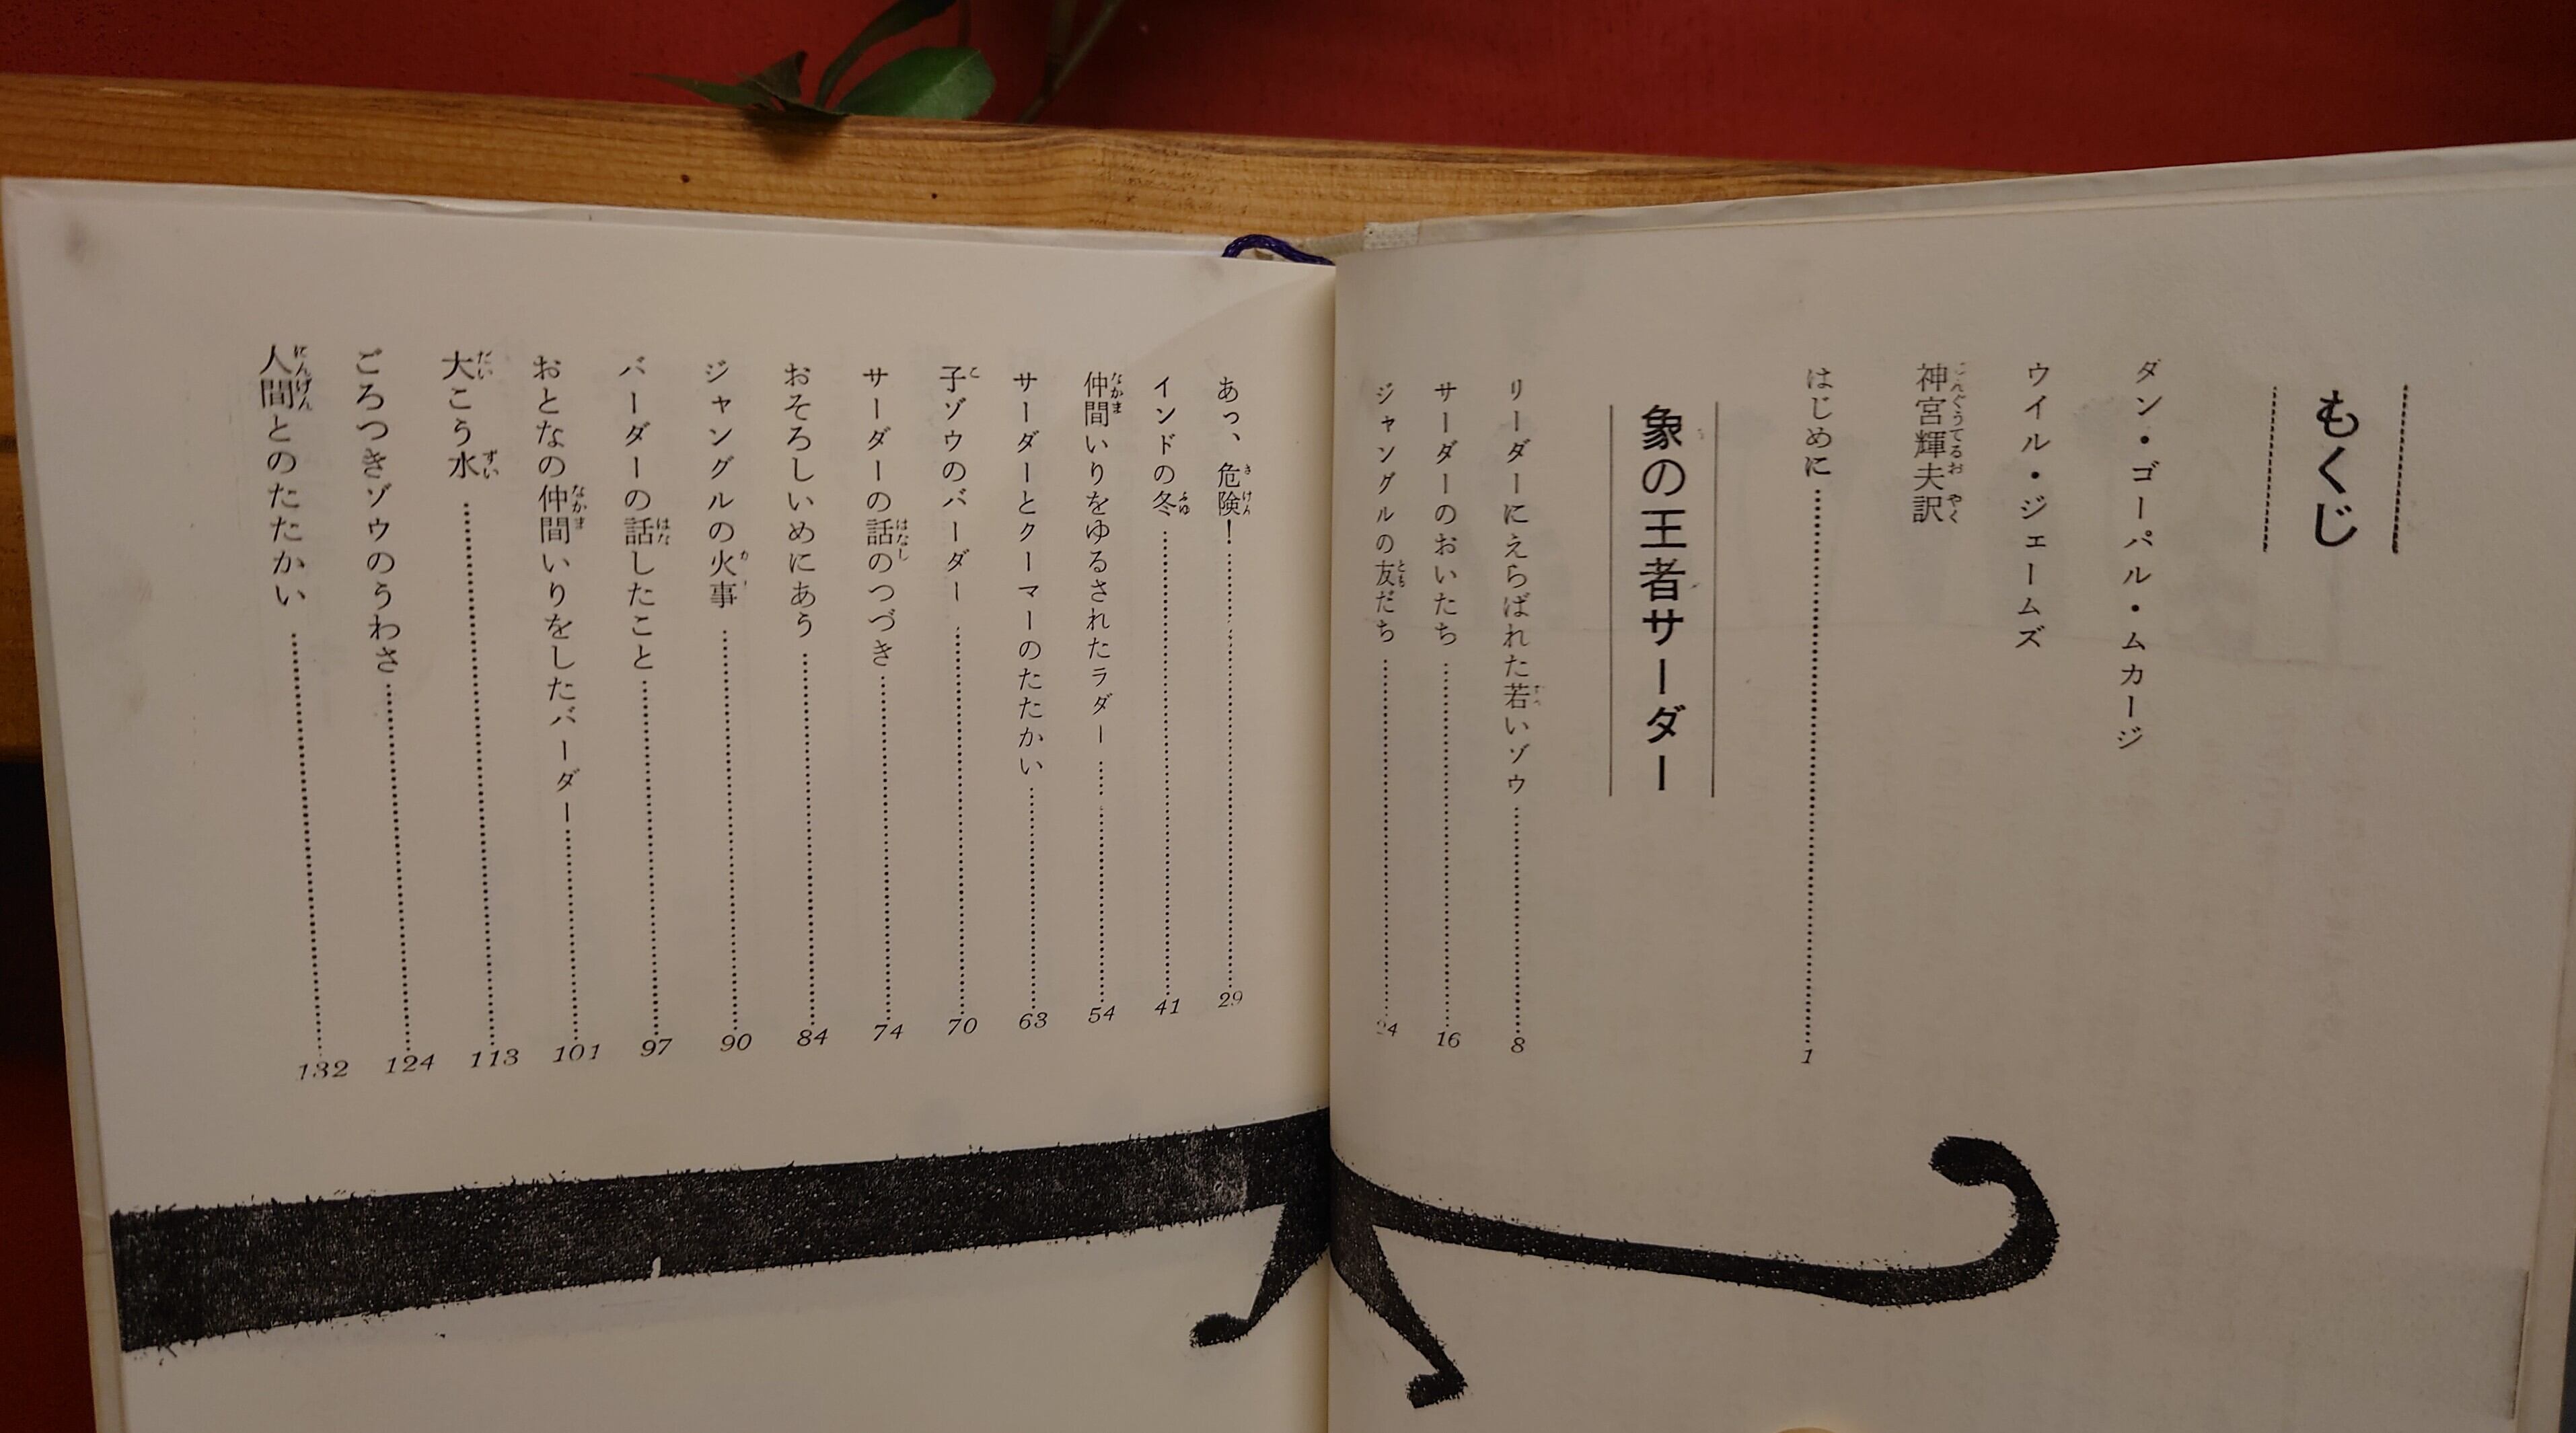 もくじ
ダン・ゴーパル・ムカージ
ウイル・ジェームズ
神宮輝夫訳
はじめに 1
象の王者サーダー
リーダーにえらばれた若いゾウ 8
サーダーのおいたち 16
ジャングルの友だち 24
あっ、危険! 29
インドの冬 41
仲間いりをゆるされたラダー 54
サーダーとクーマーのたたかい 63
子ゾウのバーダー 70
サーダーの話のつづき 74
おそろしいめにあう 84
ジャングルの火事 90
バーダーの話したこと 97
おとなの仲間いりをしたバーダー 101
大こう水 113
ごろつきゾウのうわさ 124
人間とのたたかい 132